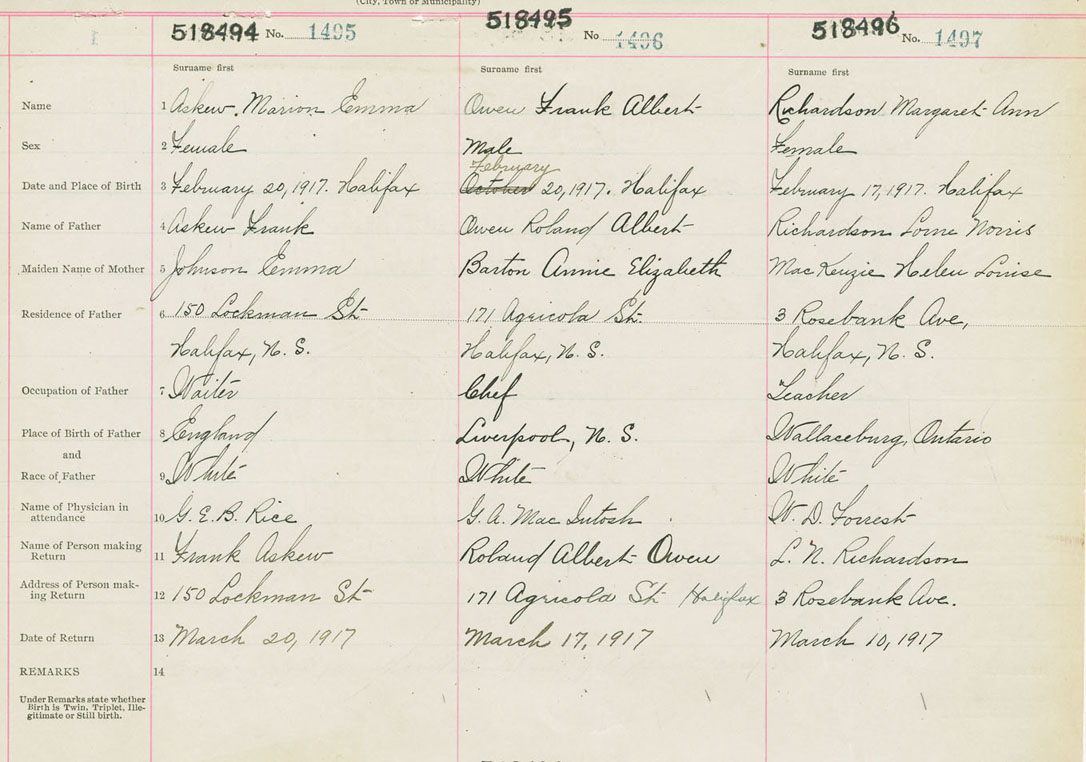 (City, Town or Municipality)
518494 No. 1495 518495 No 1496 518496 No. 1497
Surname first Surname first Surname first
Name 1 Askew, Marion Emma Owen Frank Albert Richardson Margaret Ann
Sex 2 Female Male Female
February
Date and Place of Birth 3 February 20, 1917. Halifax October 20, 1917. Halifax February 17, 1917. Halifax
Name of Father 4 Askew Frank Owen Roland Albert Richardson Lorne Norris
Maiden Name of Mother 5 Johnson Emma Barton Annie Elizabeth MacKenzie Helen Louise
Residence of Father 6 150 Lockman St 171 Agricola St. 3 Rosebank Ave,
Halifax, N. S. Halifax, N. S. Halifax, N. S.
Occupation of Father 7 Waiter Chef Teacher
Place of Birth of Father 8 England Liverpool, N. S. Wallaceburg, Ontario
and
Race of Father 9 White White White
Name of Physician in
attendance 10 G. E. B. Rice G. A. MacIntosh W. D. Forrest
Name of Person making
Return 11 Frank Askew Roland Albert Owen L. N. Richardson
Address of Person mak-
ing Return 12 150 Lockman St 171 Agricola St Halifax 3 Rosebank Ave.
Date of Return 13 March 20, 1917 March 17, 1917 March 10, 1917
REMARKS 14
Under Remarks state whether
Birth is Twin, Triplet, Ille-
gitimate or Still birth.